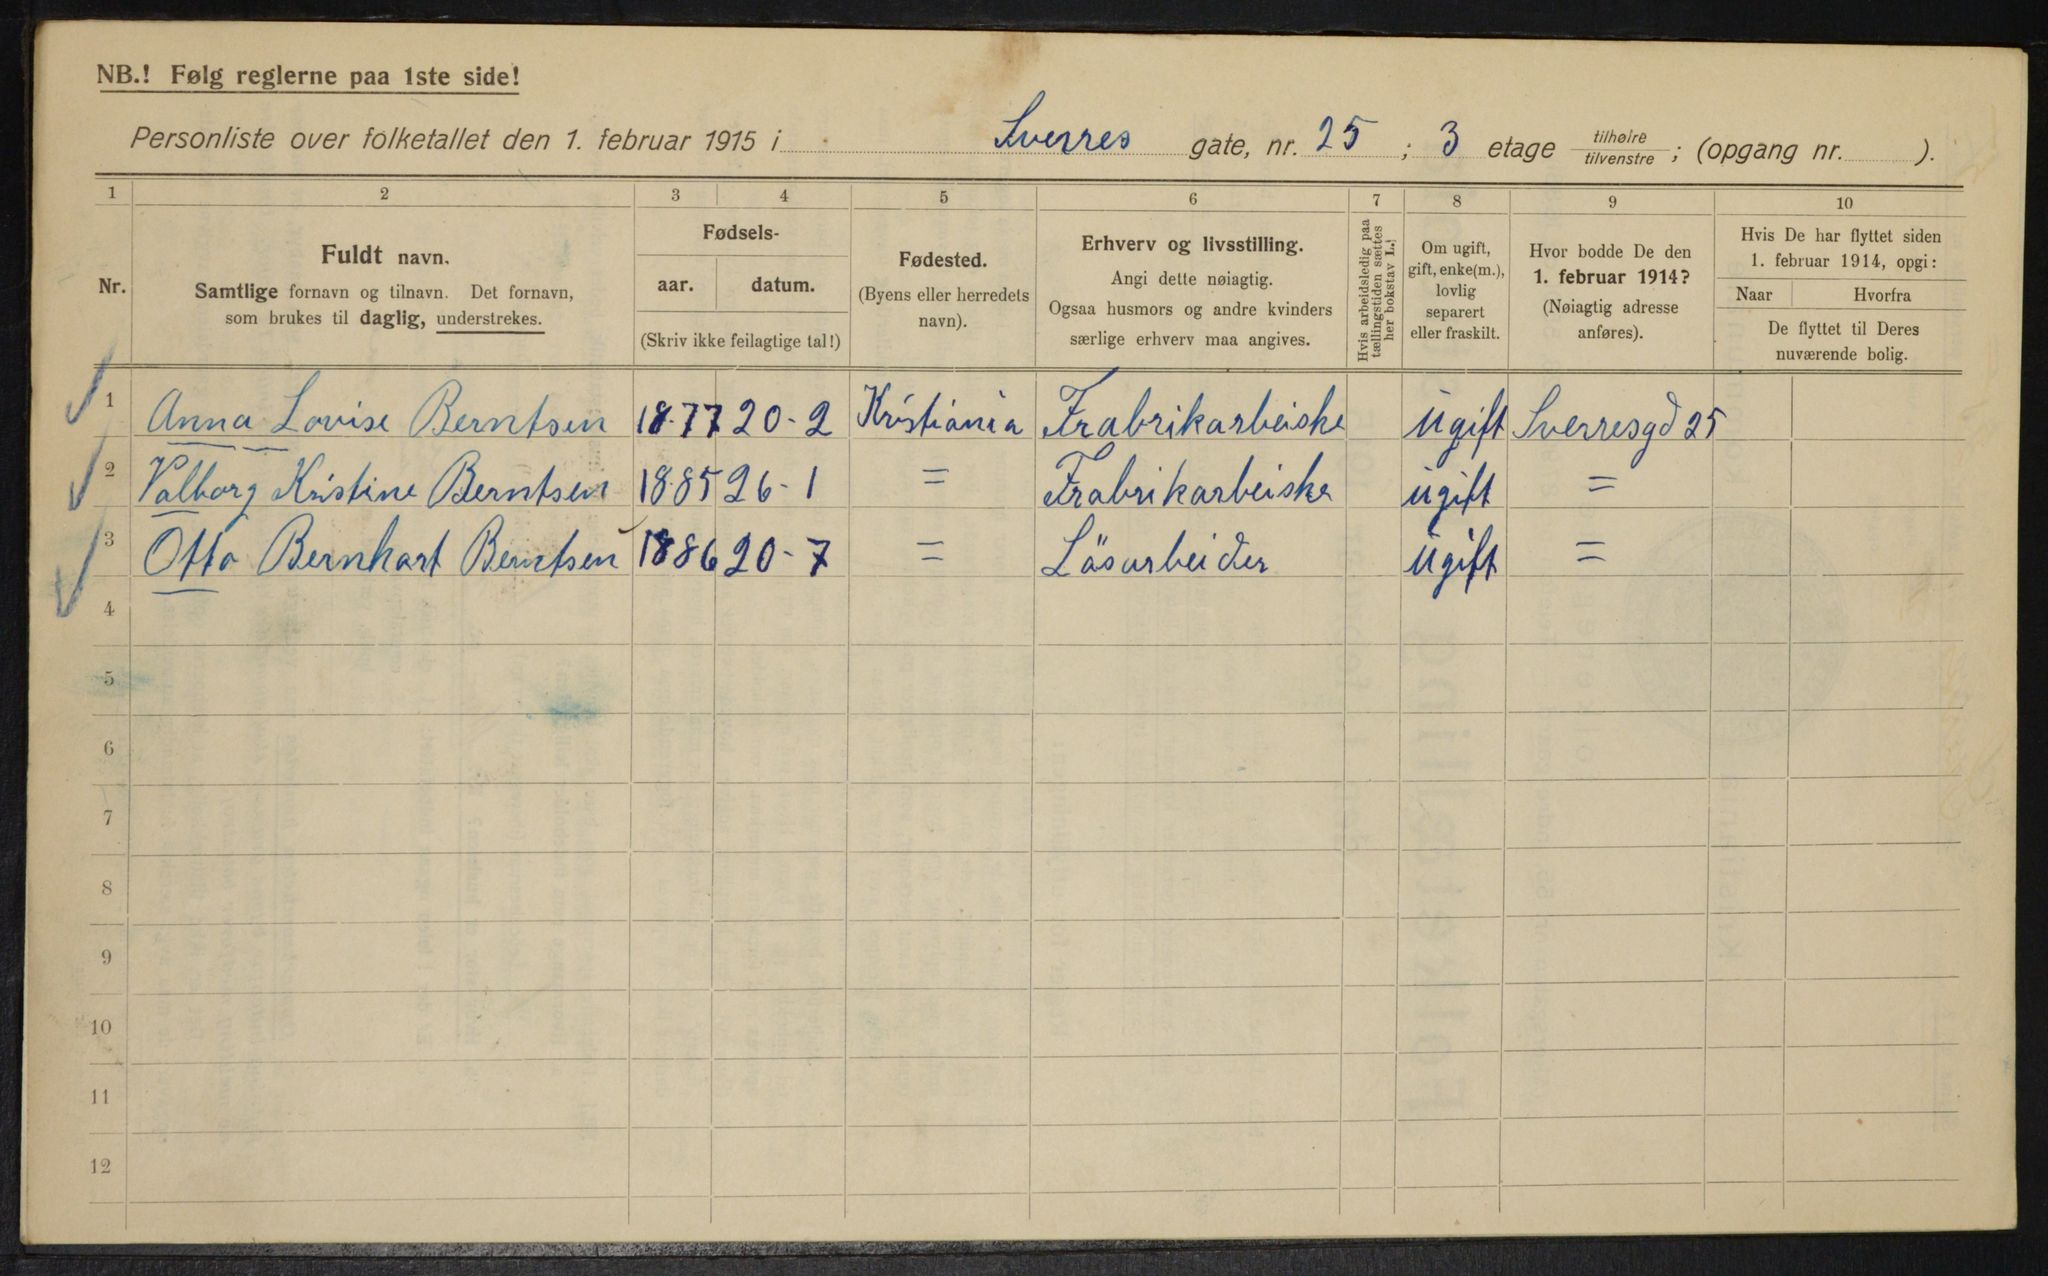 NB.! Følg reglerne paa 1ste side!
Personliste over folketallet den 1. februar 1915 i Sverres gate, nr. 25 ; 3 etage tilhøire / tilvenstre ; (opgang nr. ).
1 2 3 4 5 6 7 8 9 10
Nr.
Fuldt navn.
Samtlige fornavn og tilnavn. Det fornavn,
som brukes til daglig, understrekes.
Fødsels-
aar. datum.
(Skriv ikke feilagtige tal!)
Fødested.
(Byens eller herredets
navn).
Erhverv og livsstilling.
Angi dette nøiagtig.
Ogsaa husmors og andre kvinders
særlige erhverv maa angives.
Hvis arbeidsledig paa
tællingstiden sættes
her bokstav L.
Om ugift,
gift, enke(m.),
lovlig
separert
eller fraskilt.
Hvor bodde De den
1. februar 1914?
(Nøiagtig adresse
anføres).
Hvis De har flyttet siden
1. februar 1914, opgi:
Naar Hvorfra
De flyttet til Deres
nuværende bolig.
1 Anna Lovise Berntsen 1877 20-2 Kristiania Frabrikarbeiske ugift Sverresgd 25
2 Valborg Kristine Berntsen 1885 26-1 = Frabrikarbeiske ugift =
3 Otto Bernhart Berntsen 1886 20-7 = Lösarbeider ugift =
4
5
6
7
8
9
10
11
12